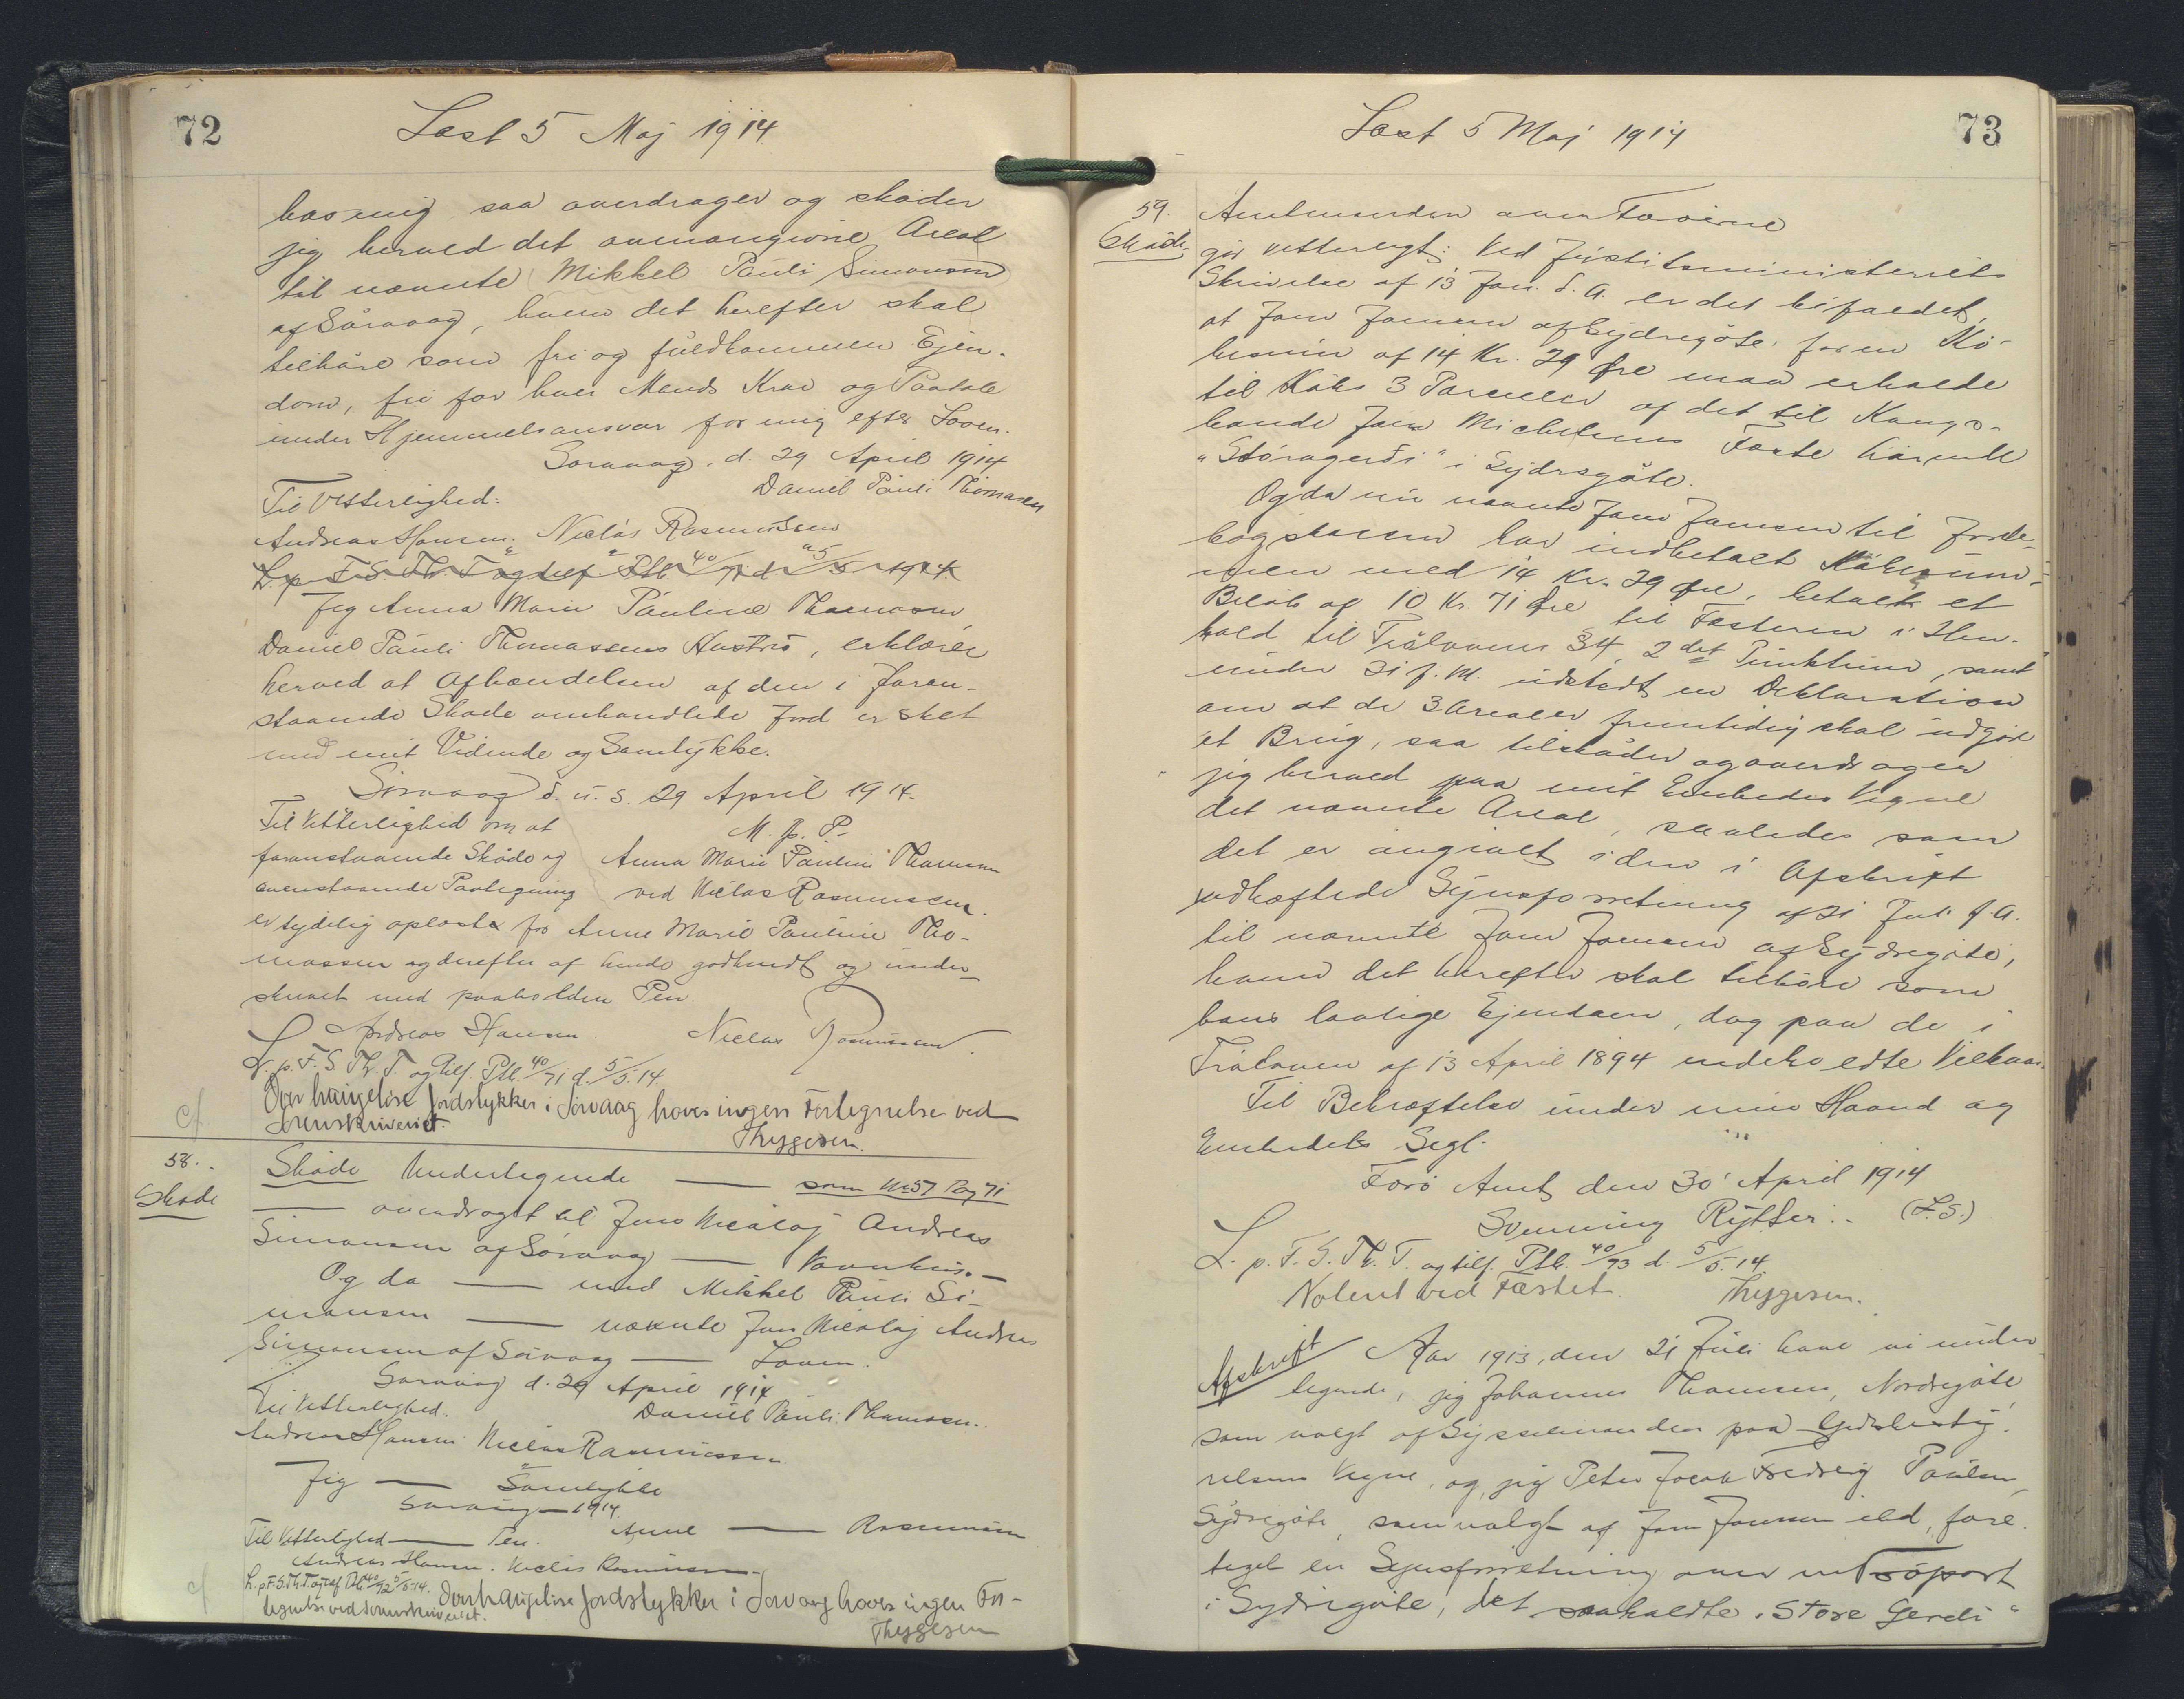 72
Læst 5 Maj 1914.
hos mig saa overdrager og skøder
jig herved det ovenangivne Areal
til nævnte Mikkel Pauli Simonsen
af Sörvaag, hvem det herefter skal
tilhöre som fri og fuldkommen Ejen-
dom, fri for hver Mands Krav og Paatale
under Hjemmelsansvar for mig efter Loven.
Sorvaag, d. 29 April 1914
Daniel Pauli Thomasen
Til Vitterlighed:
Andreas Hansen. Niclas Rasmussen
L. p. F. S. Th. T. og tilf. Ptb. 40/71 d. 5/5 1914
Jeg Anna Marie Pauline Thomasen,
Daniel Pauli Thomassens Hustru, erklærer
herved at Afhændelsen af den i foran-
staaende Skøde omhandlede Jord er sket
med mit Vidende og Samtykke.
Sorvaag d. u. s. 29 April 1914.
Til Vitterlighed om at M. f. P.
foranstaaende Skøde og Anna Marie Pauline Thomsen
ovenstaaende Paategning ved Niclas Rasmussen.
er tydelig oplæst for Anne Marie Pauline Tho-
massen og derefter af hende godkendt og under-
skrevet med paaholden Pen.
Andreas Hansen Niclas Rasmussen.
L. p. F. S. Th. T. og tilf. Ptb. 40/71 d. 5/5.14.
Over haugeløse Jordstykker i Sørvaag haves ingen Fortegnelse ved
Sorenskriveriet.
Thygesen.
cf
58.
Skøde
Skøde Undertegnede — som No 57 Pag 71
— overdraget til Jens Nicolaj Andreas
Simonsen af Sørvaag — Vaanhus. —
Og da — med Mikkel Pauli Si-
monsen — nævnte Jens Nicolaj Andreas
Simonsen af Sörvaag — Loven.
Sorvaag d. 29 April 1914
Til Vitterlighed. Daniel Pauli Thomsen.
Andreas Hansen Niclas Rasmussen
Jeg — Samtykke
Sorvaag — 1914.
Til Vitterlighed — Pen. Anne — Rasmussen
Andreas Hansen. Niclas Rasmussen
L. p. F. S. Th. T. og tilf. Ptb. 40/72 5/5.14. Over haugeløse Jordstykker i Sørvaag haves ingen For-
tegnelse ved Sorenskriveriet.
Thygesen
cf
73
Læst 5 Maj 1914
59.
Skøde.
Amtmanden over Færøerne
gör vitterligt: Ved Justitsministeriets
Skrivelse af 13 Jan. d. A. er det bifaldet,
at Joen Joensen af Sydregöte, for en Kö-
besum af 14 Kr. 29 Øre maa erholde
til Køb 3 Parceller af det til Kongs-
bonde Joen Michelsens Fæste hörende
"Störagerði" i Sydregöte.
Og da nu nævnte Joen Joensen til Jorde-
bogskassen har indbetalt Købesum-
men med 14 Kr. 29 Øre, betalt et
Beløb af 10 Kr. 71 Øre til Fæsteren i Hen-
hold til Trålovens § 4, 2det Punktum, samt
under 31 f. M. udstedt en Deklaration
om at de 3 Arealer fremtidig skal udgøre
et Brug, saa tilskøder og overdrager
jig herved paa mit Embedes Vegne
det nævnte Areal, saaledes som
det er angivet i den i Afskrift
vedhæftede Synsforretning af 21 Juli f. A.
til nævnte Joen Joensen af Sydregöte,
hvem det herefter skal tilhöre som
hans lovlige Ejendom, dog paa de i
Tråloven af 13 April 1894 indeholdte Vilkaar.
Til Bekræftelse under min Haand og
Embedets Segl.
Færø Amt den 30' April 1914
Svenning Rytter. (L.S.)
L. p. F. S. Th. T. og tilf. Ptb. 40/73 d. 5/5.14.
Noteret ved Fæstet. Thygesen.
Afskrift Aar 1913, den 21 Juli have vi under-
tegnede, jeg Johannes Thomsen, Nordregöte,
som valgt af Sysselmanden paa Godsbesty-
relsens Vegne, og jeg Peter Jacob Fredrig Poulsen,
Sydregöte, som valgt af Joen Joensen ild, fore-
taget en Synsforretning over en Tröpart
i Sydregöte, det saakaldte "Store Gerdi"